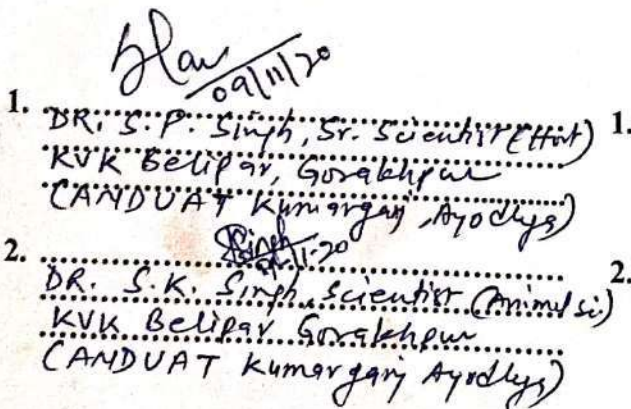 09/11/20
1. DR. S. P. Singh, Sr. Scientist (Hort) 1.
KVK Belipar, Gorakhpur
(ANDUAT Kumarganj, Ayodhya)
2. 2.
DR. S. K. Singh, Scientist (Animal Sc.)
KVK Belipar Gorakhpur
(ANDUAT Kumarganj Ayodhya)